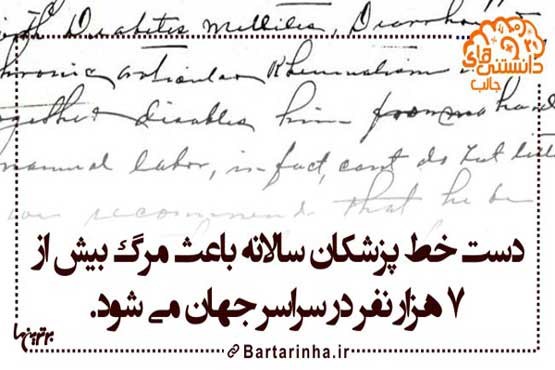 with Diabetes Mellitus, Diarrhoea
chronic articular Rheumatism
together disables him from
manual labor, in fact, cant do but
we recommend that he be
دانستنی های
جالب
دست خط پزشکان سالانه باعث مرگ بیش از
۷ هزار نفر در سراسر جهان می شود.
برترینها
Bartarinha.ir